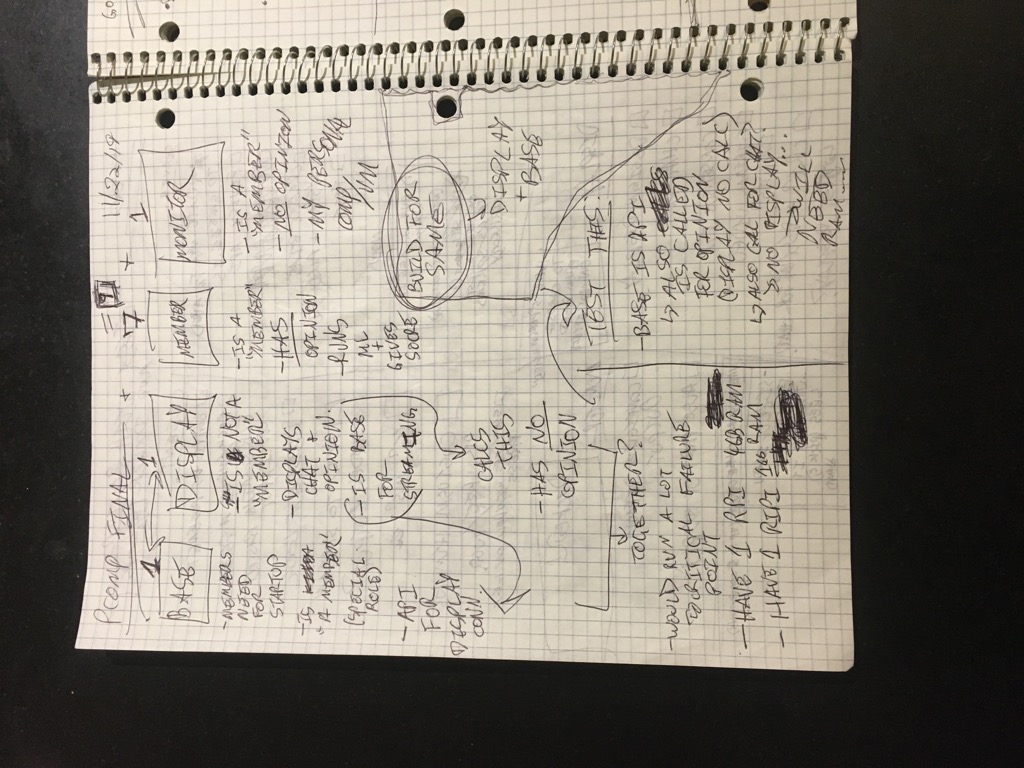 PCOMP FINAL
11/22/19
= 9
1 1 + 7 + 1
BASE
DISPLAY
MEMBER
MONITOR
- MEMBERS
NEED
FOR
STARTUP
- IS
"A MEMBER"
(SPECIAL
ROLE)
- API
FOR
DISPLAY
CONN.
- IS NOT A
"MEMBER"
- DISPLAYS
CHAT +
OPINION.
- IS BASE
FOR
STREAMING
CALCS
THIS
- HAS NO
OPINION
- IS A
"MEMBER"
- HAS
OPINION
- RUNS
ML
+
GIVES
SCORE
- IS A
"MEMBER"
- NO OPINION
- MY PERSONAL
COMP/VM
BUILD FOR
SAME
DISPLAY
+ BASE
TOGETHER?
- WOULD RUN A LOT
CRITICAL FAILURE
POINT
- HAVE 1 RPI 4GB RAM
- HAVE 1 RIPI 1GB RAM
TEST THIS:
- BASE IS API
↳ ALSO
IS CALLED
FOR OPINION
(DISPLAY NO CALC)
↳ ALSO CALL FOR CHAT?
→ NO DISPLAY...
→ WILL
NEED
RAM....
GO